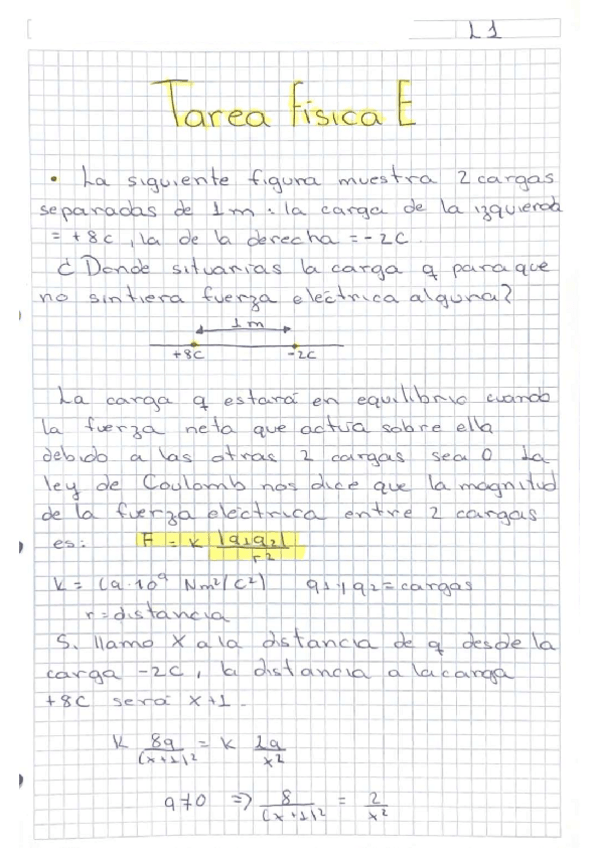 L1
Tarea física E
• La siguiente figura muestra 2 cargas
separadas de 1m. la carga de la izquierda
= +8C, la de la derecha = -2C
¿Donde situarías la carga q para que
no sintiera fuerza eléctrica alguna?
1 m
+8C -2C
La carga q estará en equilibrio cuando
la fuerza neta que actúa sobre ella
debido a las otras 2 cargas sea 0 La
ley de Coulomb nos dice que la magnitud
de la fuerza eléctrica entre 2 cargas
es: F = K |q1q2| / r²
K = (9·10⁹ Nm²/C²) q1 y q2 = cargas
r = distancia
Si llamo X a la distancia de q desde la
carga -2C, la distancia a la carga
+8C será x+1.
K 8q/(x+1)² = K 2q/x²
q≠0 => 8/(x+1)² = 2/x²